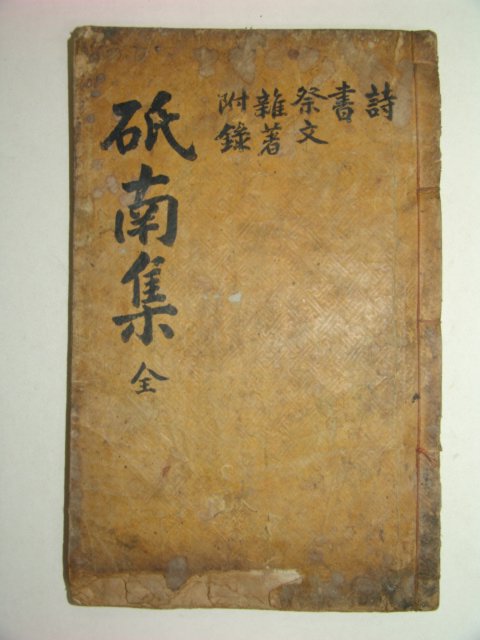 詩
書
祭文
雜著
附錄
砥南集 全